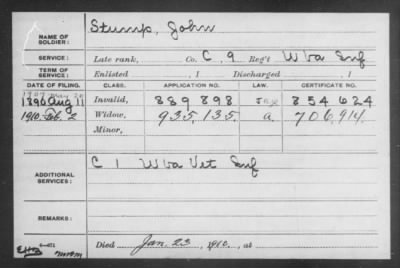 NAME OF SOLDIER: Stump, John
SERVICE: Late rank, Co. C, 9 Reg't W Va Inf
TERM OF SERVICE: Enlisted , 1 Discharged , 1
DATE OF FILING. CLASS. APPLICATION NO. LAW. CERTIFICATE NO.
1890 Aug 11 Invalid, 889 898 854 624
1910. Feb. 2 Widow, 935,135 a 706,914
Minor,
ADDITIONAL SERVICES: C 1 W Va Vet Inf
REMARKS:
Died Jan. 23, 1910, at